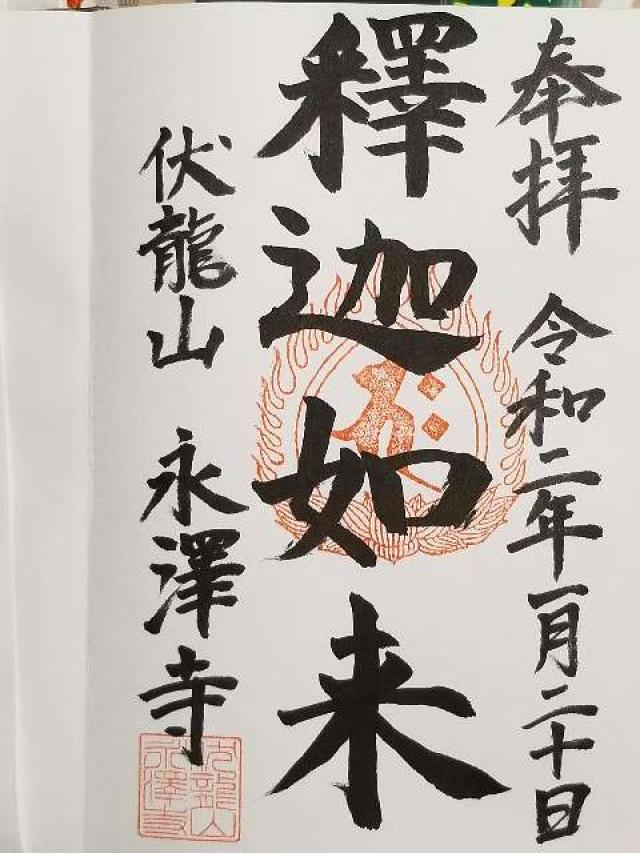 奉拝 令和二年一月二十日
釋迦如来
伏龍山 永澤寺
伏龍山
永澤寺